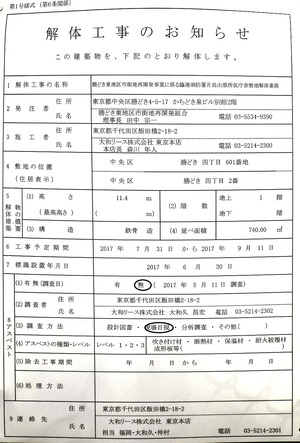 第1号様式（第6条関係）
解体工事のお知らせ
この建築物を、下記のとおり解体します。
1 解体工事の名称 勝どき東地区市街地再開発事業に係る臨港消防署月島出張所仮庁舎敷地解体業務
2 発注者 住所 東京都中央区勝どき4-5-17 かちどき泉ビル別館2階
氏名 勝どき東地区市街地再開発組合
理事長 田中 宗一 電話 03-5534-9390
3 施工者 住所 東京都千代田区飯田橋2-18-2
氏名 大和リース株式会社 東京本店
本店長 森川 年人 電話 03-5214-2300
4 敷地の位置 中央区 勝どき 四丁目 601番地
（住居表示） 中央区 勝どき 四丁目 2番
5 解体建築物の概要 (1) 高さ 11.4 m (2) 階数 地上 1 階
（最高高さ） ( m) 地下 階
(3) 構造 鉄骨 造 (4) 延べ面積 740.00 ㎡
6 工事予定期間 2017 年 7 月 31 日 から 2017 年 9 月 11 日
7 標識設置年月日 2017 年 6 月 30 日
8 アスベスト (1) 有無(調査日) 有 無 (2017 年 5 月 11 日 調査)
(2) 調査者 住所 東京都千代田区飯田橋2-18-2
氏名 大和リース株式会社 大和久 昌宏 電話 03-5214-2302
(3) 調査方法 設計図書・現場目視・分析調査・その他( )
(4) アスベストの種類・レベル レベル 1・2・3 吹き付け材・断熱材・保温材・耐火被覆材
成形板等( )
(5) 除去工事期間 年 月 日 から 年 月 日
(6) 処理方法
9 連絡先 東京都千代田区飯田橋2-18-2
大和リース株式会社 東京本店
担当 福岡・大和久・仲村 電話 03-5214-2301